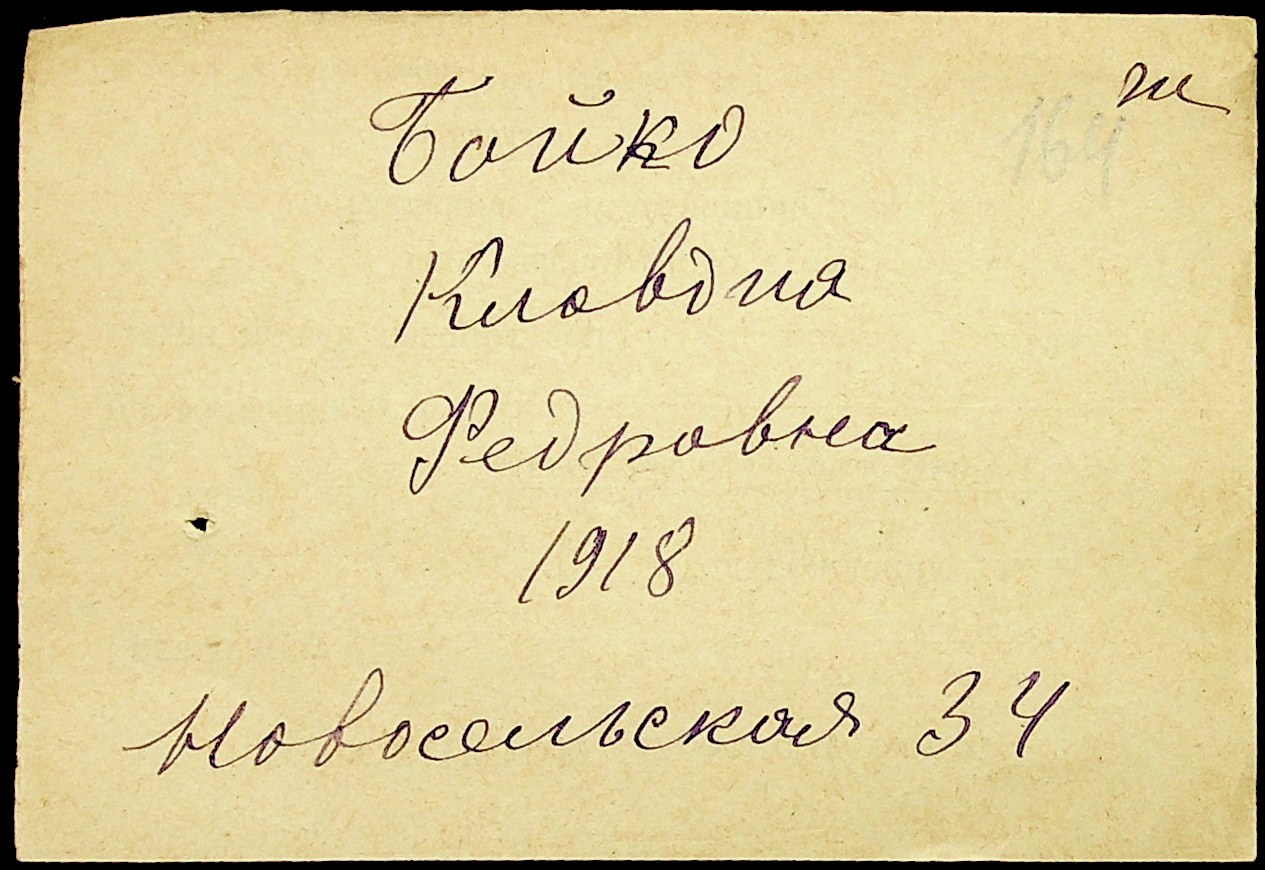 ж
164
Бойко
Клавдия
Федровна
1918
Новосельская 34